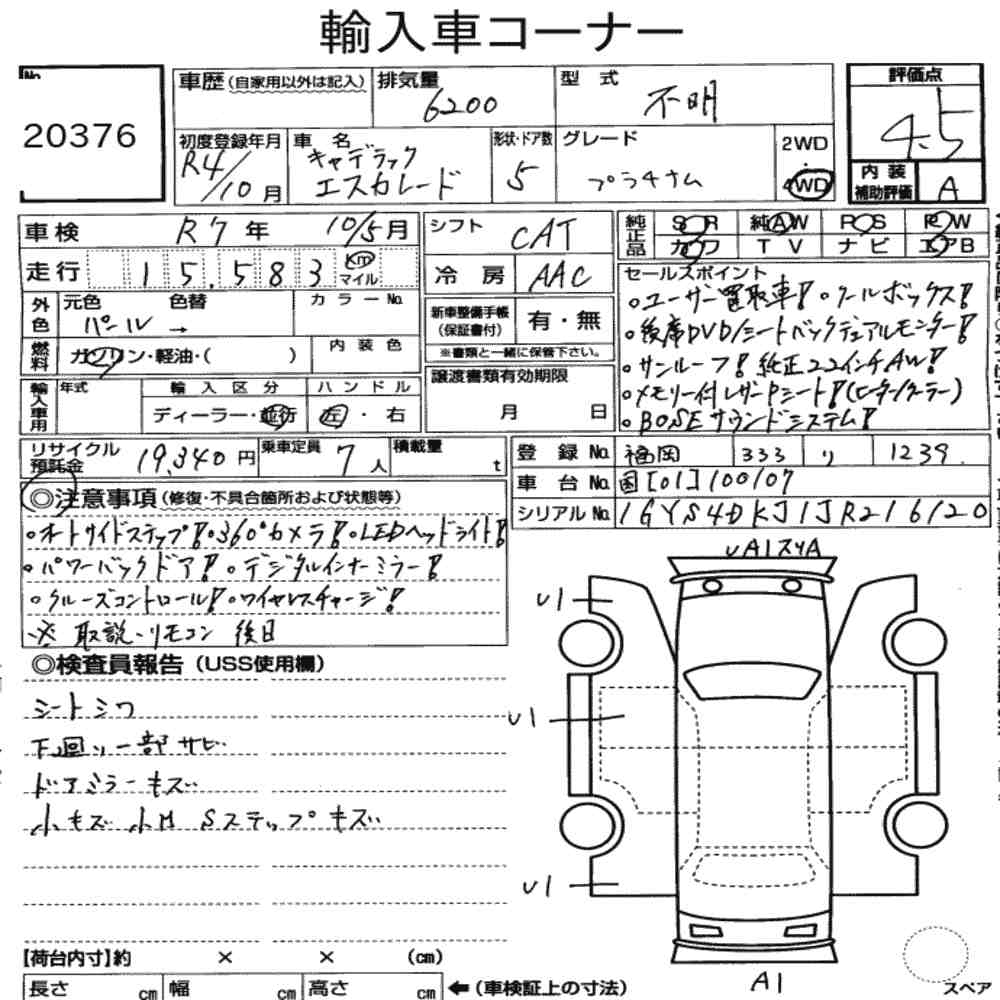 輸入車コーナー
No. 20376
車歴(自家用以外は記入) 排気量 6200 型式 不明 評価点 4.5
初度登録年月 R4/10月 車名 キャデラック エスカレード 形状・ドア数 5 グレード プラチナム 2WD・4WD 内装補助評価 A
車検 R7年 10/5月 シフト CAT 純正品 SR 純AW PS PW
カワ TV ナビ エアB
走行 15,583 Km マイル 冷房 AAC
外色 元色 パール → 色替 カラーNo. 新車整備手帳(保証書付) 有・無
※書類と一緒に保管下さい。
燃料 ガソリン・軽油・( ) 内装色 譲渡書類有効期限 月 日
輸入車用 年式 輸入区分 ディーラー・並行 ハンドル 左・右
セールスポイント
○ユーザー買取車! ○クールボックス!
○後席DVD/シートバックデュアルモニター!
○サンルーフ! 純正22インチAW!
○メモリー付レザーPシート!(ヒーター/クーラー)
○BOSEサウンドシステム!
リサイクル預託金 19,340円 乗車定員 7人 積載量 t
登録No. 福岡 333 り 1239
車台No. 国[01]100107
シリアルNo. 1GYS4DKJ1JR216120
◎注意事項(修復・不具合箇所および状態等)
○オートサイドステップ! ○360°カメラ! ○LEDヘッドライト!
○パワーバックドア! ○デジタルインナーミラー!
○クルーズコントロール! ○ワイヤレスチャージ!
※ 取説・リモコン 後日
◎検査員報告(USS使用欄)
シートシワ
下回り一部サビ
ドアミラーキズ
小キズ 小M Sステップキズ
UA1スリA
U1
U1
U1
A1
スペア
【荷台内寸】約 × × (cm)
長さ cm 幅 cm 高さ cm ←(車検証上の寸法)